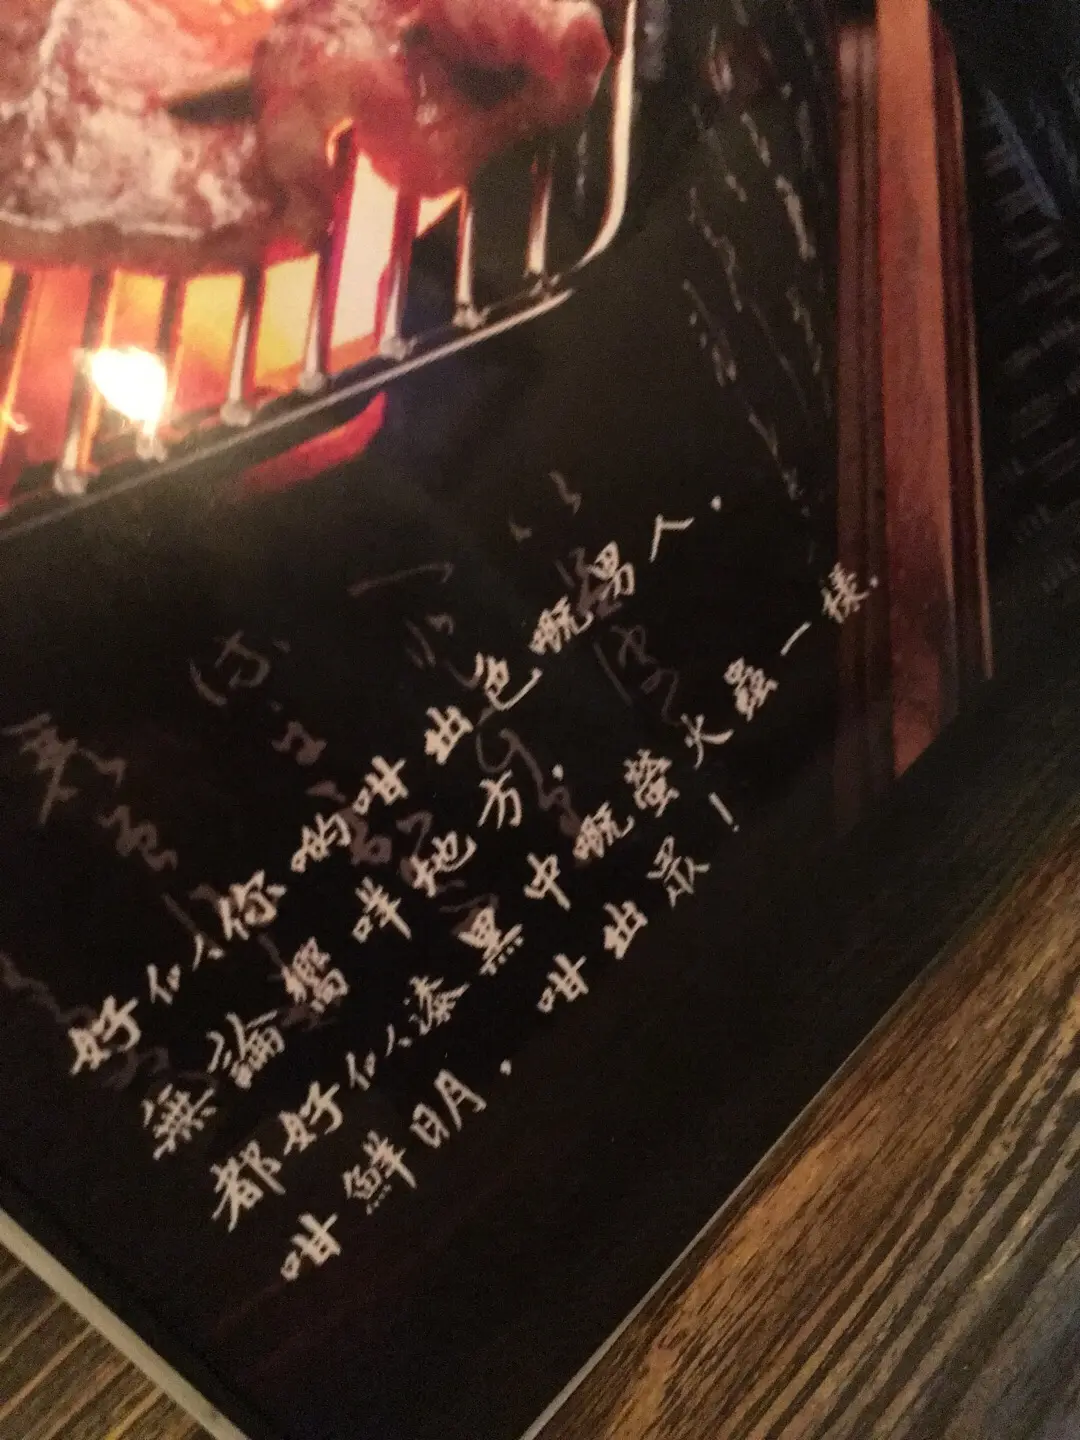 好似你啲咁出色嘅男人，
無論響咩地方，
都好似漆黑中嘅螢火蟲一樣，
咁鮮明，咁出眾！